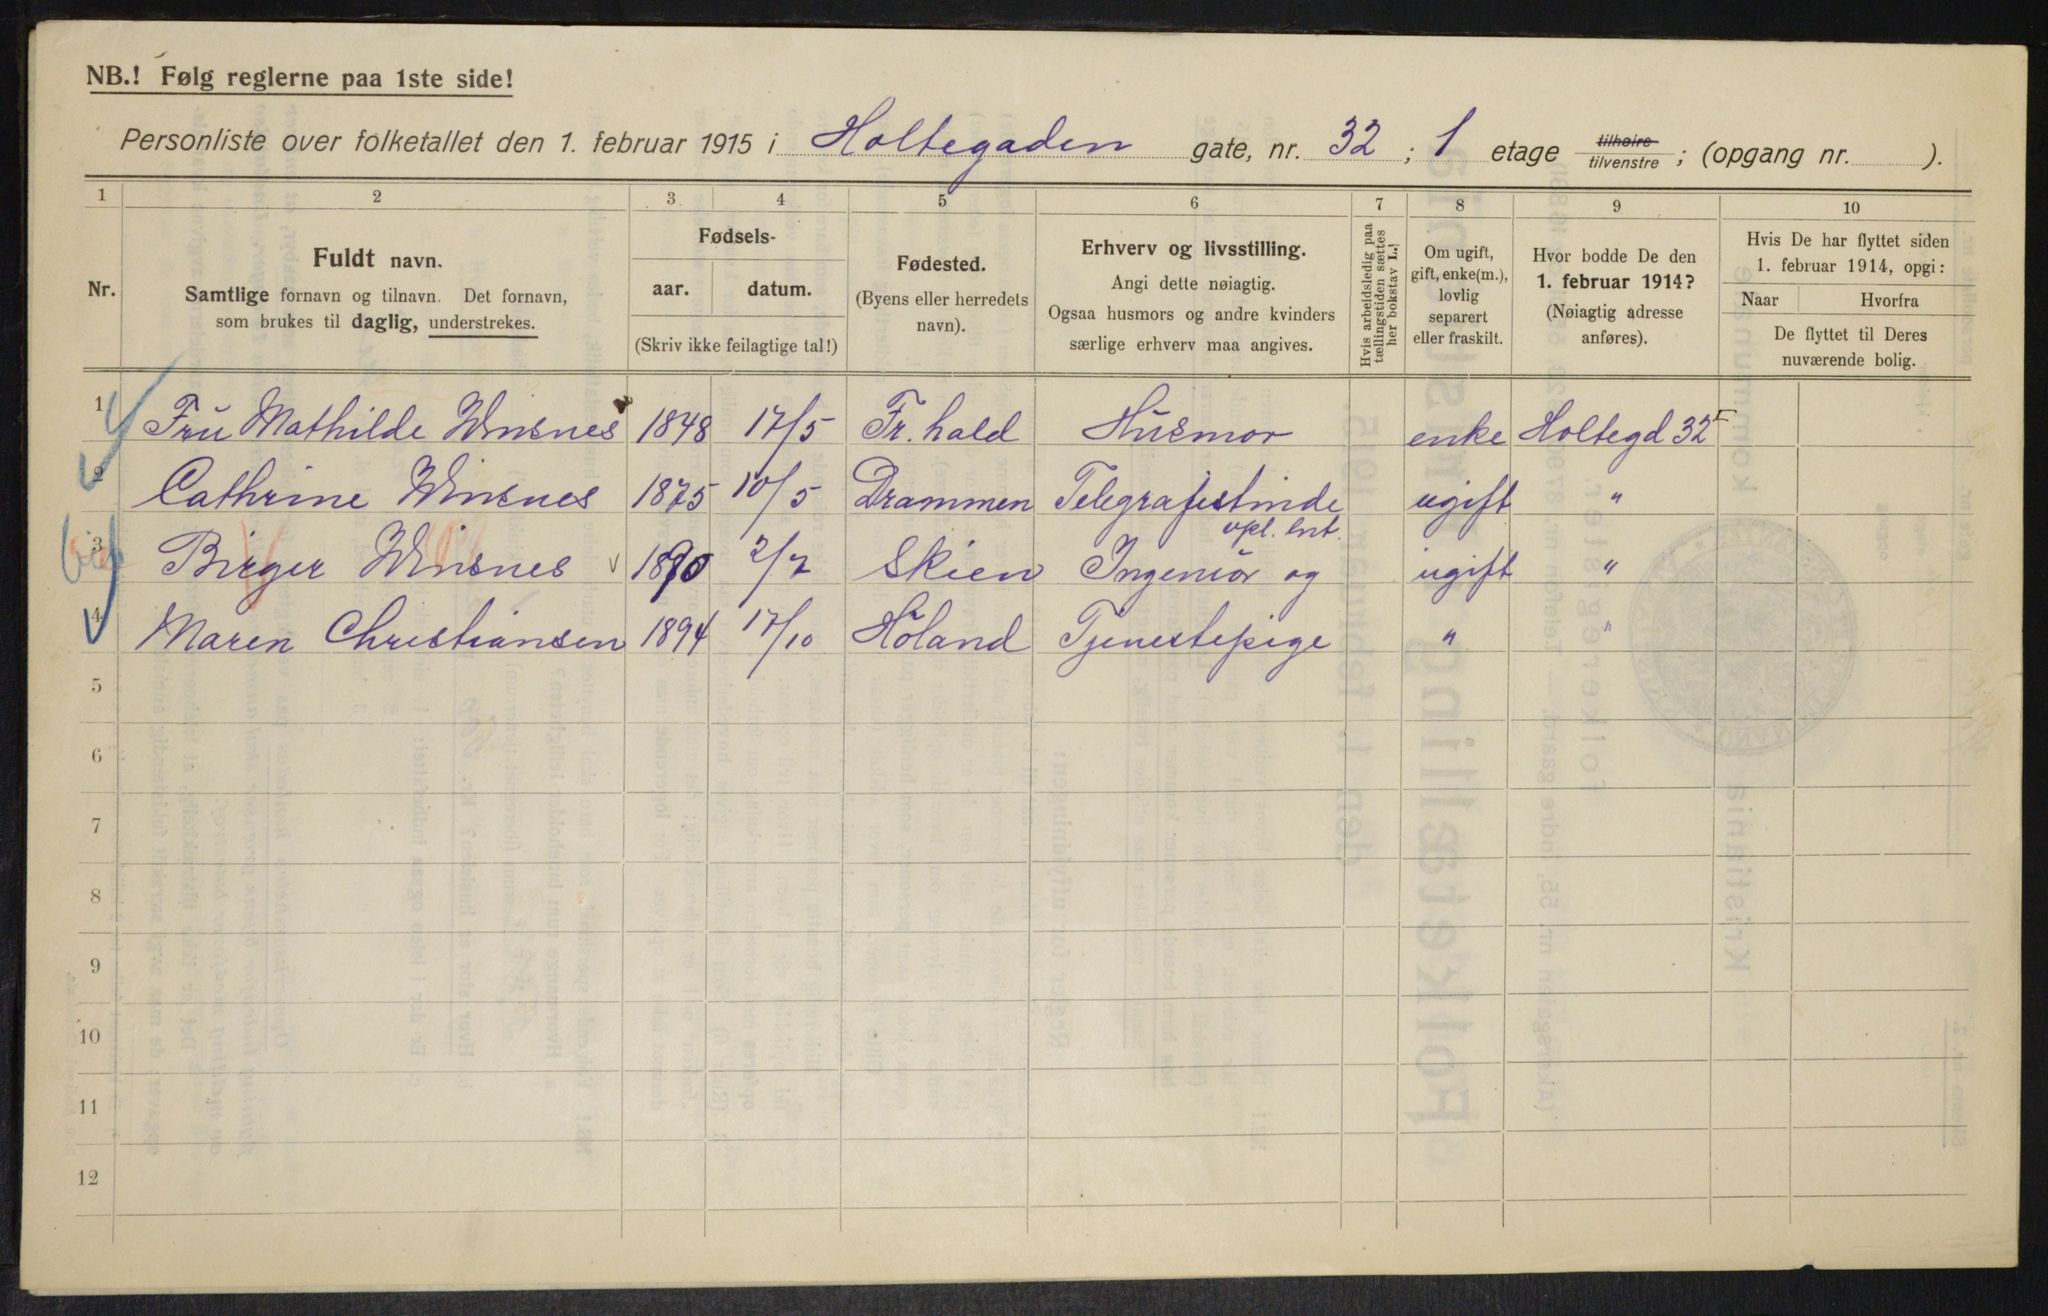 NB.! Følg reglerne paa 1ste side!
Personliste over folketallet den 1. februar 1915 i Holtegaden gate, nr. 32 ; 1 etage tilhøire tilvenstre ; (opgang nr. ).
1 2 3 4 5 6 7 8 9 10
Nr.
Fuldt navn.
Samtlige fornavn og tilnavn. Det fornavn,
som brukes til daglig, understrekes.
Fødsels-
aar. datum.
(Skriv ikke feilagtige tal!)
Fødested.
(Byens eller herredets
navn).
Erhverv og livsstilling.
Angi dette nøiagtig.
Ogsaa husmors og andre kvinders
særlige erhverv maa angives.
Hvis arbeidsledig paa
tællingstiden sættes
her bokstav L.!
Om ugift,
gift, enke(m.),
lovlig
separert
eller fraskilt.
Hvor bodde De den
1. februar 1914?
(Nøiagtig adresse
anføres).
Hvis De har flyttet siden
1. februar 1914, opgi:
Naar Hvorfra
De flyttet til Deres
nuværende bolig.
1 Fru Mathilde Winsnes 1848 17/5 Fr.hald Husmor enke Holtegd 32 I
2 Cathrine Winsnes 1875 10/5 Drammen Telegrafistinde ugift "
3 Birger Winsnes 1890 2/2 Skien Ingeniør og ugift "
4 Maren Christiansen 1894 17/10 Höland Tjenestepige " "
5
6
7
8
9
10
11
12